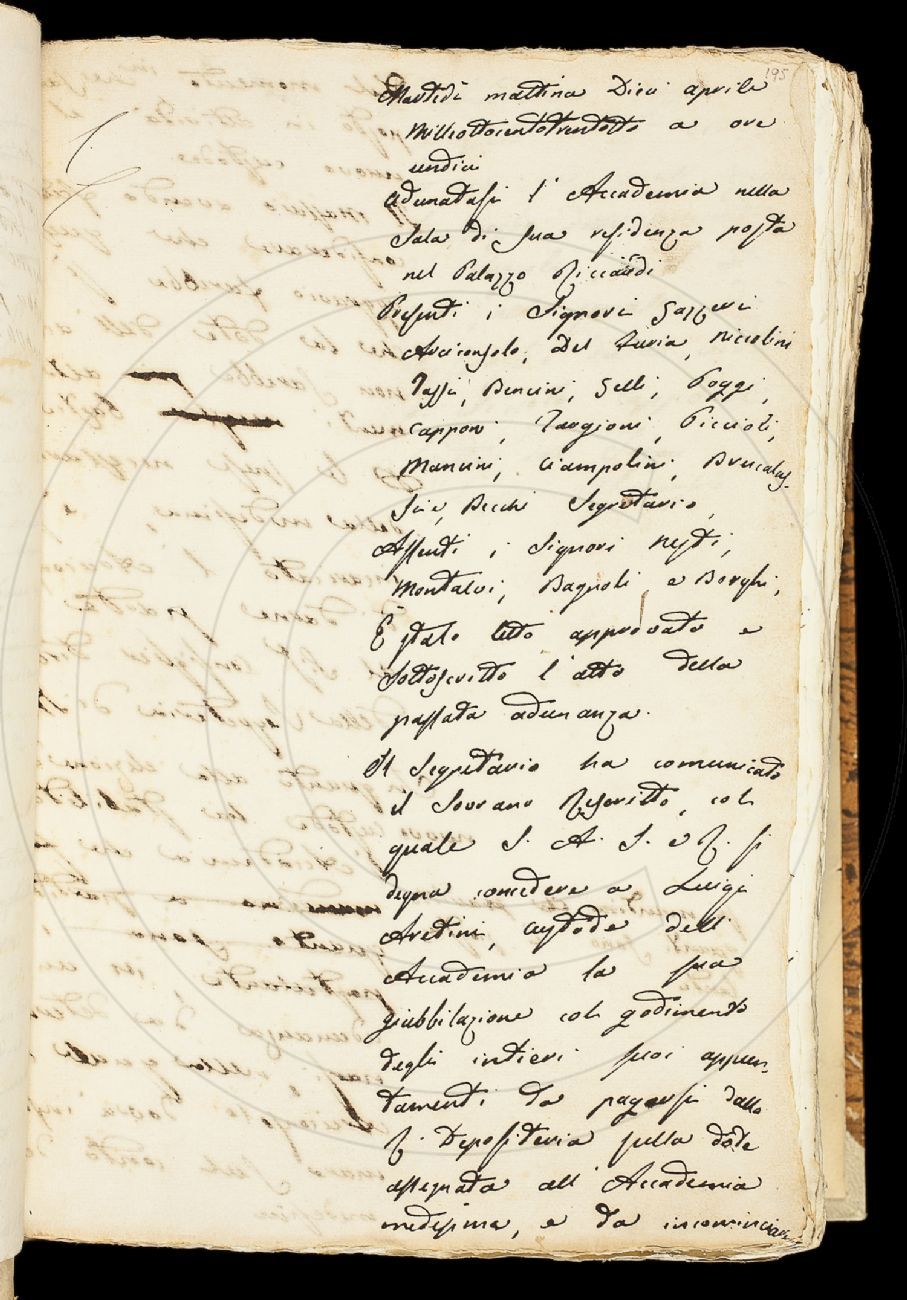 195
Martedì mattina Dieci aprile
Milleottocentotrentotto a ore
undici
Adunatasi l'Accademia nella
Sala di sua residenza posta
nel Palazzo Riccardi
Presenti i Signori Gazzeri
Arciconsolo, Del Furia, Niccolini
Tassi, Bencini, Gelli, Poggi,
Capponi, Targioni, Piccioli,
Mancini, Ciampolini, Brucalas-
si e, Becchi Segretario,
Assenti i Signori Nesti,
Montalvi, Bagnoli e Borghi,
È stato letto approvato e
sottoscritto l'atto della
passata adunanza.
Il Segretario ha comunicato
il Sovrano Rescritto, col
quale S. A. I. e R. si
degna concedere a Luigi
Aretini, custode dell'
Accademia la sua
giubbilazione col godimento
degli intieri suoi appun-
tamenti da pagarsi dalla
R. Depositeria sulla dote
assegnata all'Accademia
medesima, e da incominciare